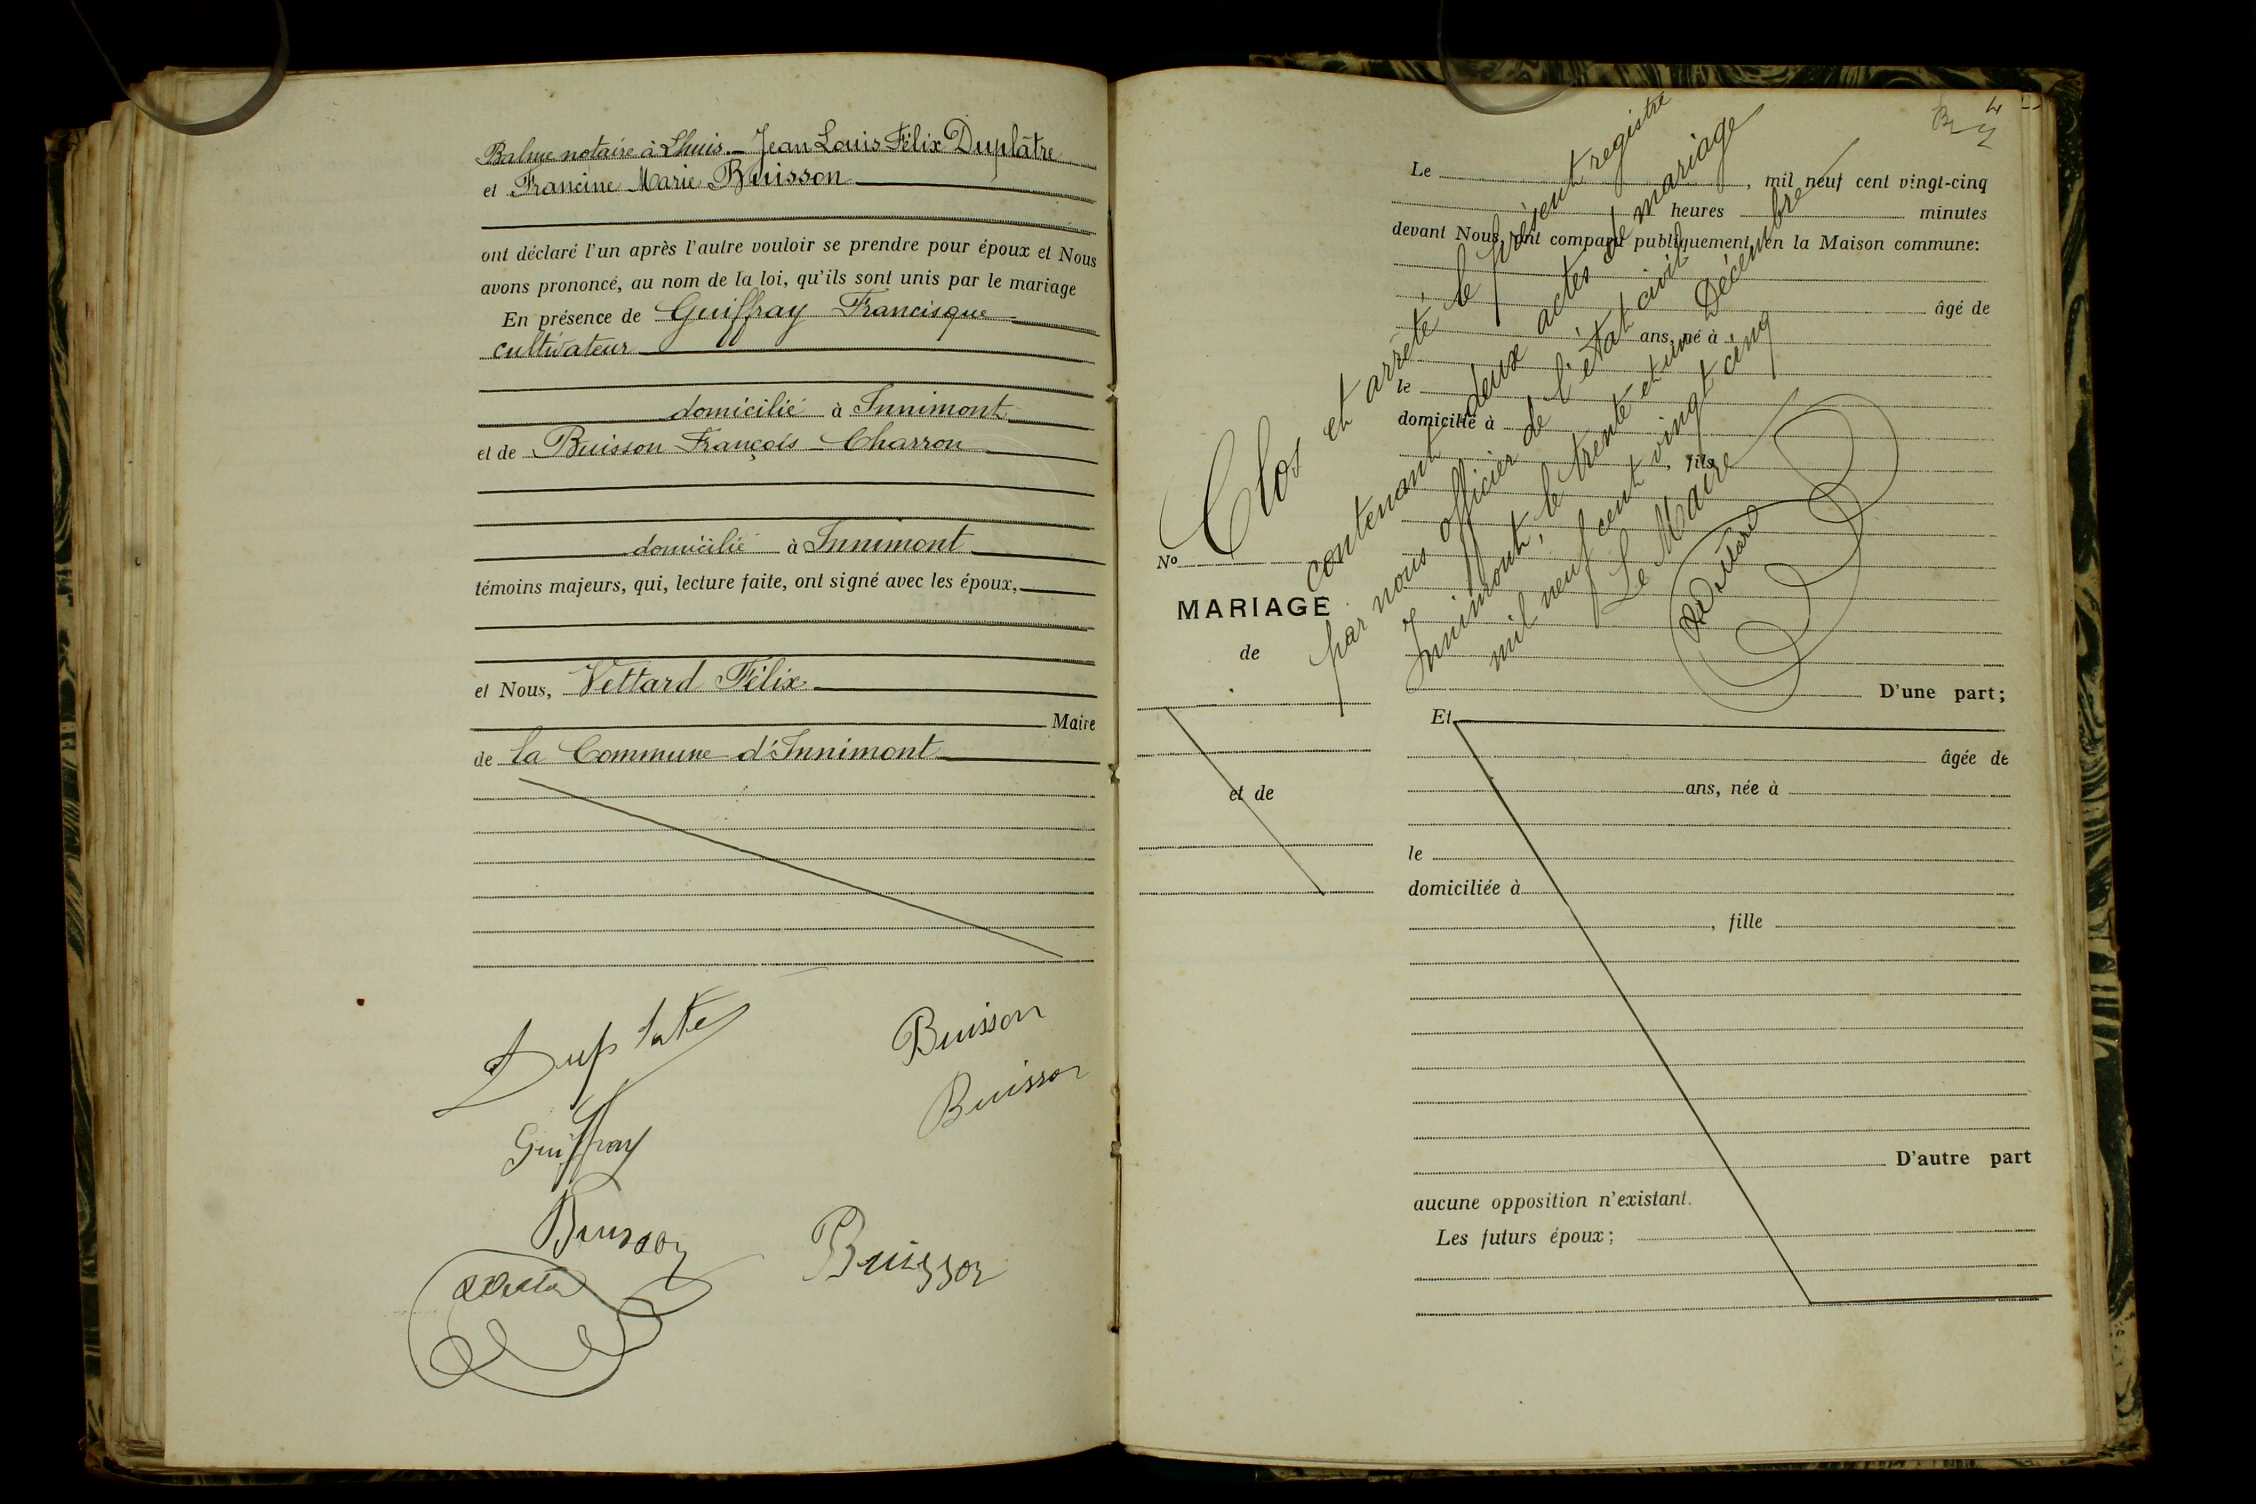 Balme notaire à Lhuis. – Jean Louis Félix Duplâtre
et Francine Marie Buisson
ont déclaré l'un après l'autre vouloir se prendre pour époux et Nous
avons prononcé, au nom de la loi, qu'ils sont unis par le mariage
En présence de Guiffray Francisque
cultivateur
domicilié à Innimont
et de Buisson François Charron
domicilié à Innimont
témoins majeurs, qui, lecture faite, ont signé avec les époux,
et Nous, Vettard Félix
Maire
de la Commune d'Innimont
Duplatre
Buisson
Buisson
Guiffray
Buisson
Buisson
4
Clos et arrêté le présent registre
contenant deux actes de mariage
par nous officier de l'état civil
Innimont, le trente et un Décembre
mil neuf cent vingt cinq
Le Maire
Vettard
No
MARIAGE
de
et de
Le , mil neuf cent vingt-cinq
heures minutes
devant Nous, ont comparu publiquement en la Maison commune:
âgé de
ans, né à
le
domicilié à
, fils
D'une part;
Et
âgée de
ans, née à
le
domiciliée à
, fille
D'autre part
aucune opposition n'existant.
Les futurs époux;